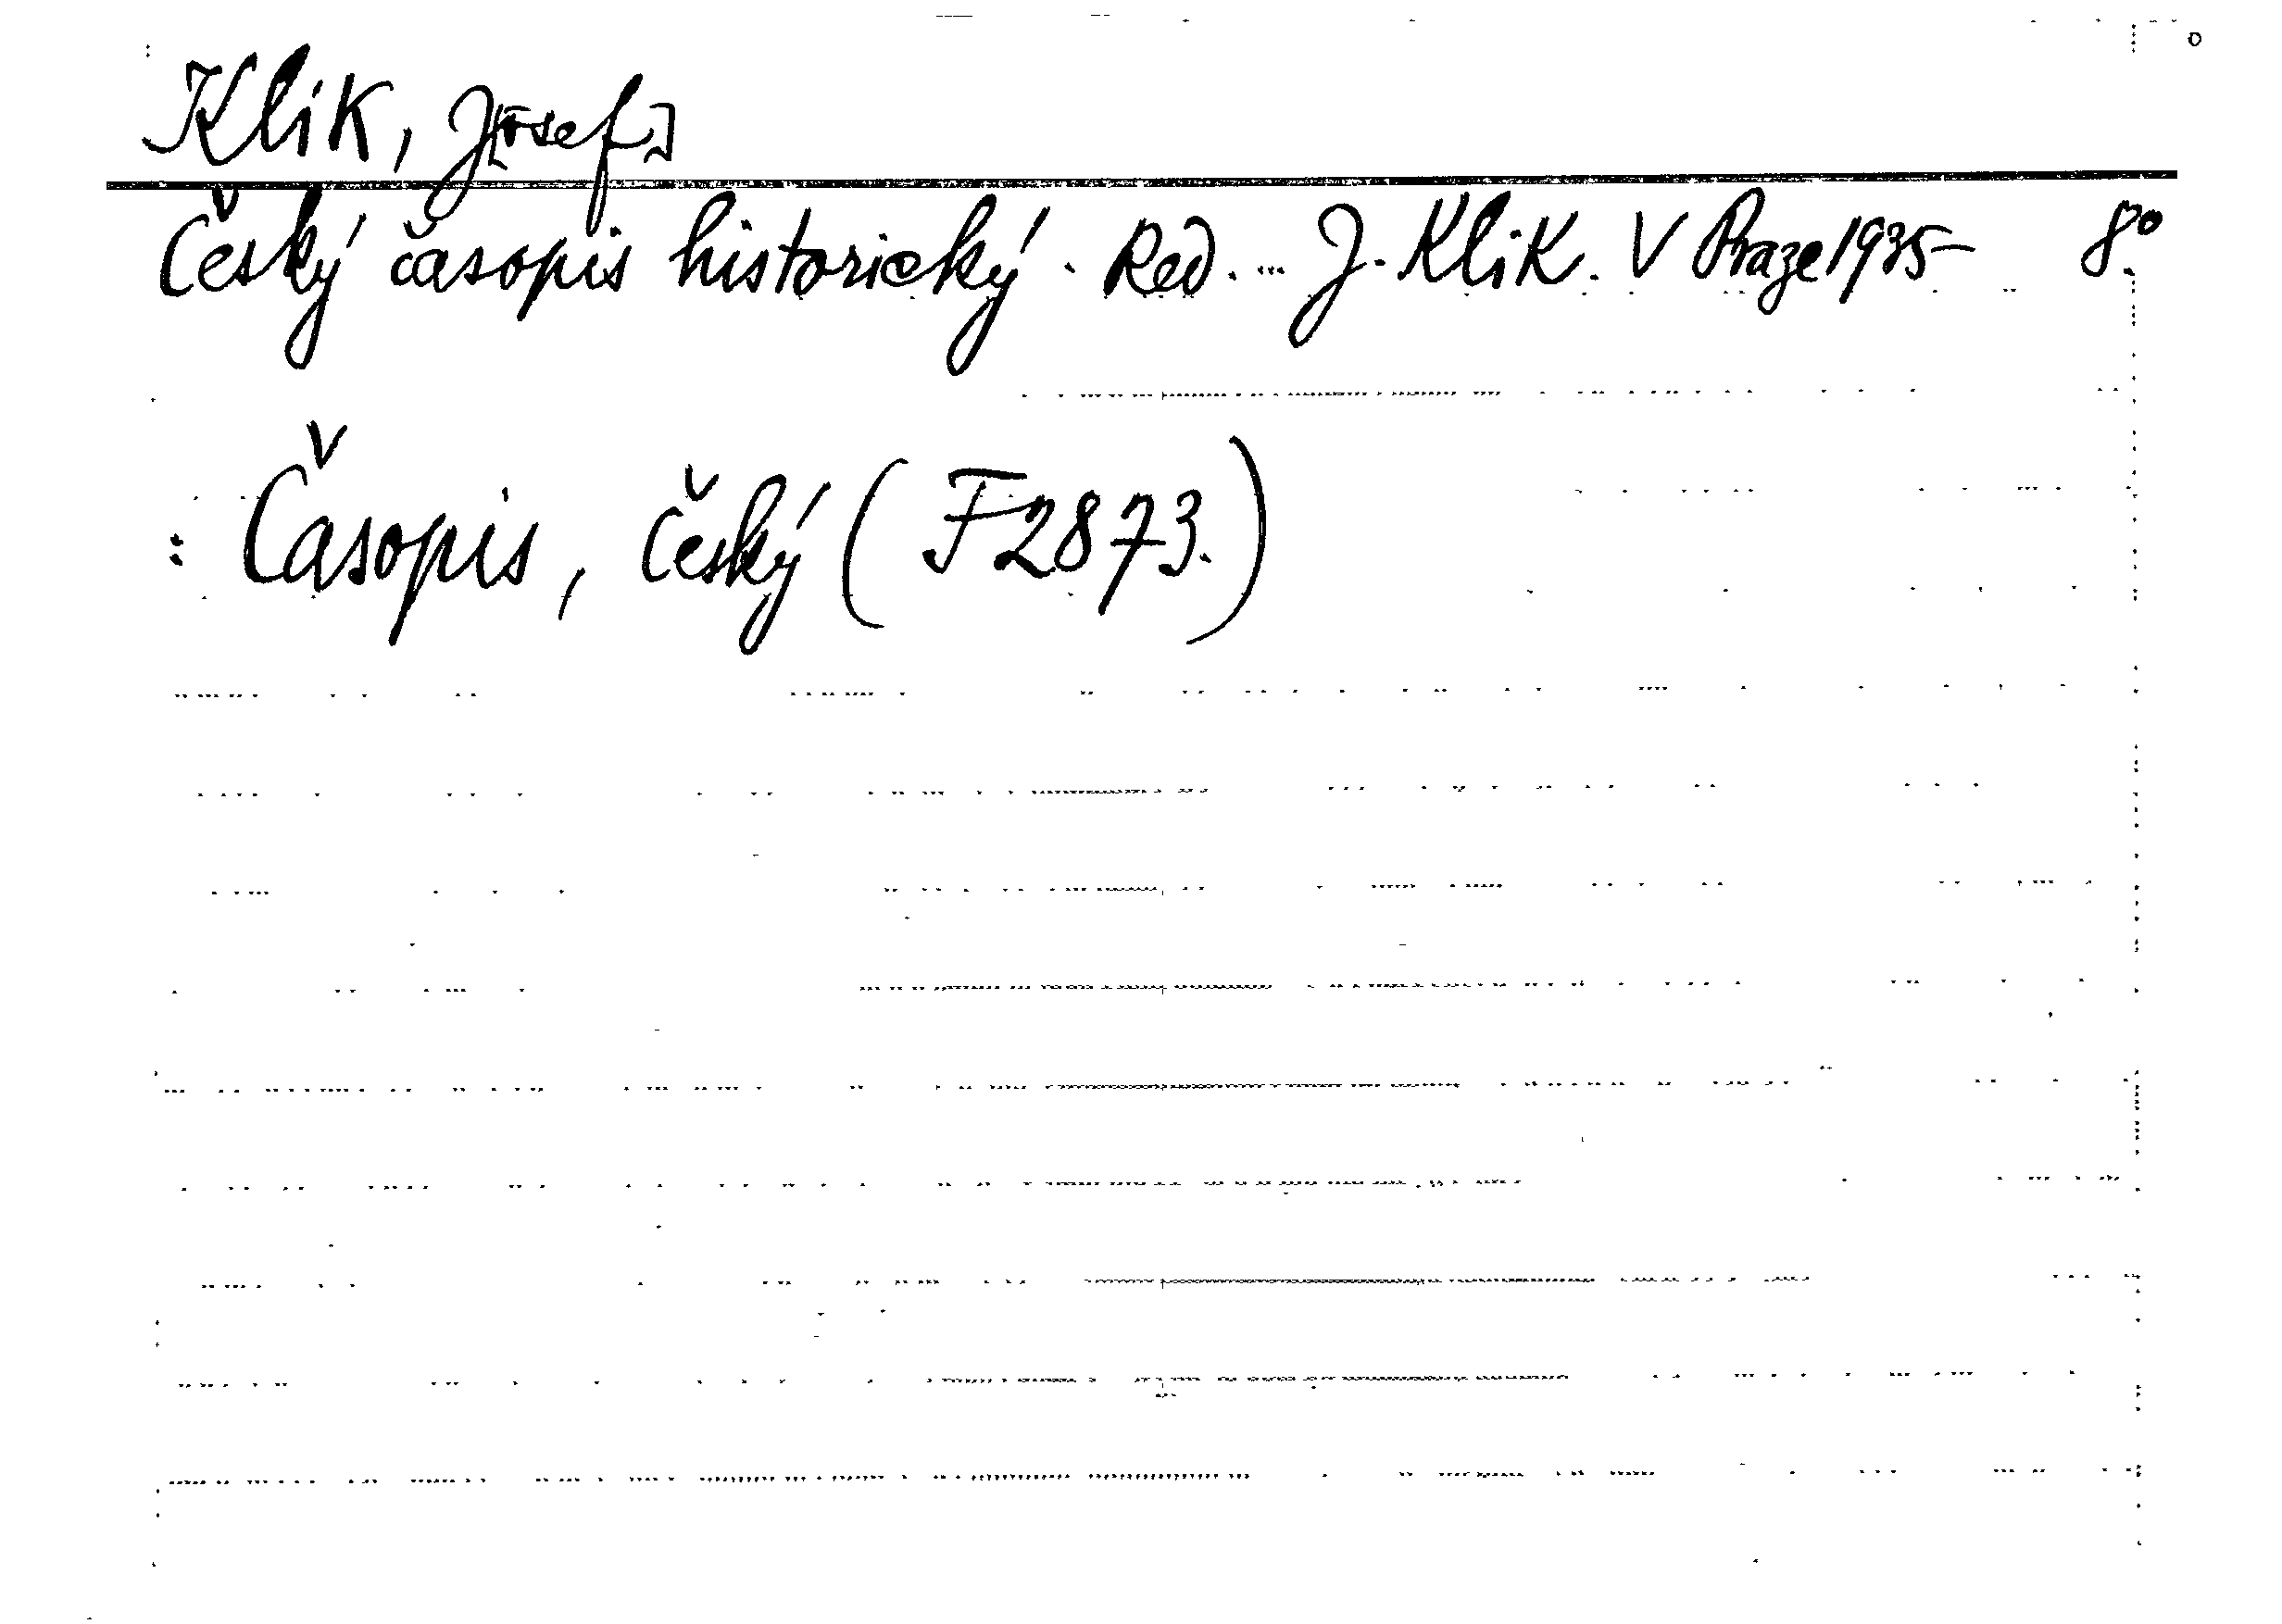 Klik, J[osef]
Český časopis historický. Red. ... J. Klik. V Praze 1935- 8°.
: Časopis, český (F 2873.)